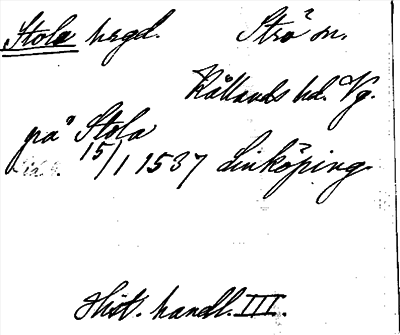 Stola hrgd. Strö sn.
Kållands hd. Vg.
på Stola
15/1 1537 Linköping
Hist. handl. III.